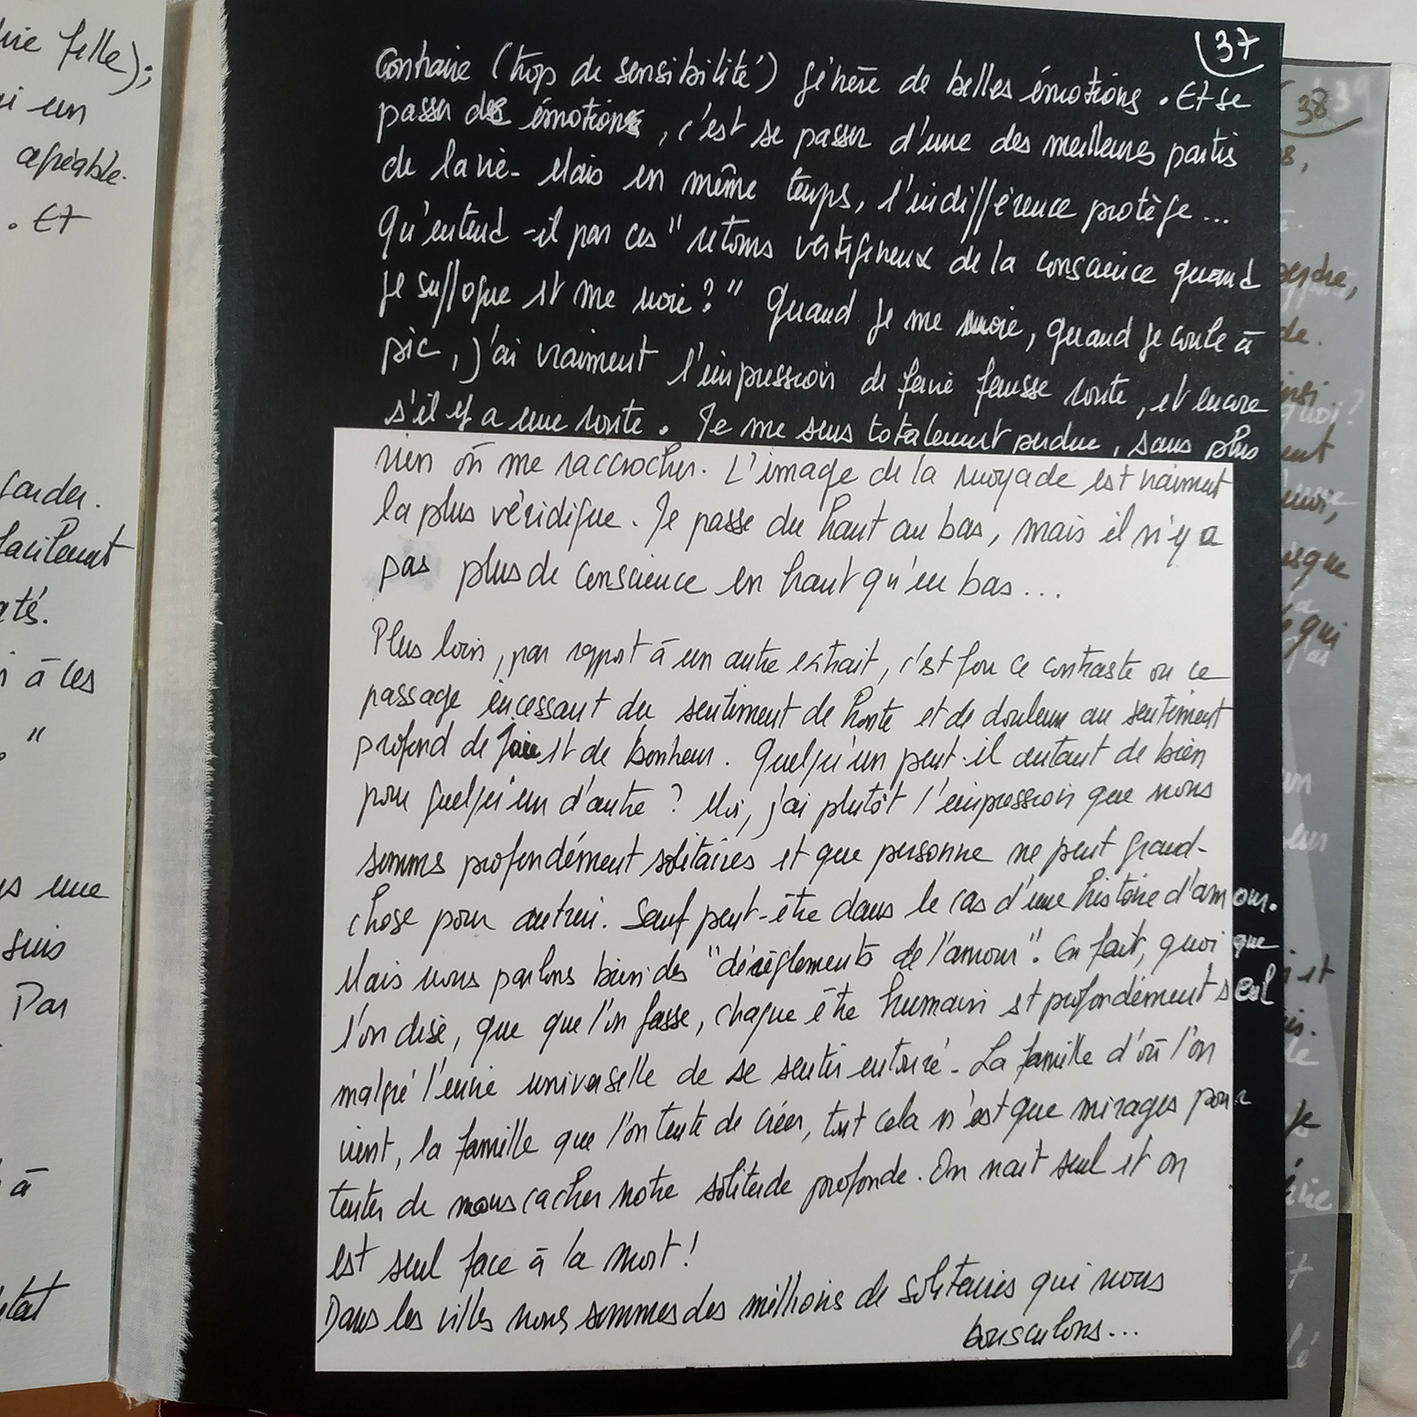 ie fille);
i un
agréable.
. Et
garder.
facilement
tés.
i à ces
."
s une
suis
Par
à
état
37
contraire (trop de sensibilité) génère de belles émotions. Et se
passer des émotions, c'est se passer d'une des meilleures parties
de la vie. Mais en même temps, l'indifférence protège...
Qu'entend-il par ces "retours vertigineux de la conscience quand
je suffoque et me noie?" Quand je me noie, quand je coule à
pic, j'ai vraiment l'impression de faire fausse route, et encore
s'il y a une route. Je me sens totalement perdue, sans plus
rien où me raccrocher. L'image de la noyade est vraiment
la plus véridique. Je passe du haut au bas, mais il n'y a
pas plus de conscience en haut qu'en bas...
Plus loin, par rapport à un autre extrait, c'est fou ce contraste ou ce
passage incessant du sentiment de honte et de douleur au sentiment
profond de joie et de bonheur. Quelqu'un peut-il autant de bien
pour quelqu'un d'autre ? Moi, j'ai plutôt l'impression que nous
sommes profondément solitaires et que personne ne peut grand-
chose pour autrui. Sauf peut-être dans le cas d'une histoire d'amour.
Mais nous parlons bien des "dérèglements de l'amour". En fait, quoi que
l'on dise, que que l'on fasse, chaque être humain est profondément seul
malgré l'envie universelle de se sentir entouré. La famille d'où l'on
vient, la famille que l'on tente de créer, tout cela n'est que mirages pour
tenter de nous cacher notre solitude profonde. On nait seul et on
est seul face à la mort!
Dans les villes nous sommes des millions de solitaires qui nous
bousculons...
38
39
perdre,
de.
insi
quoi?